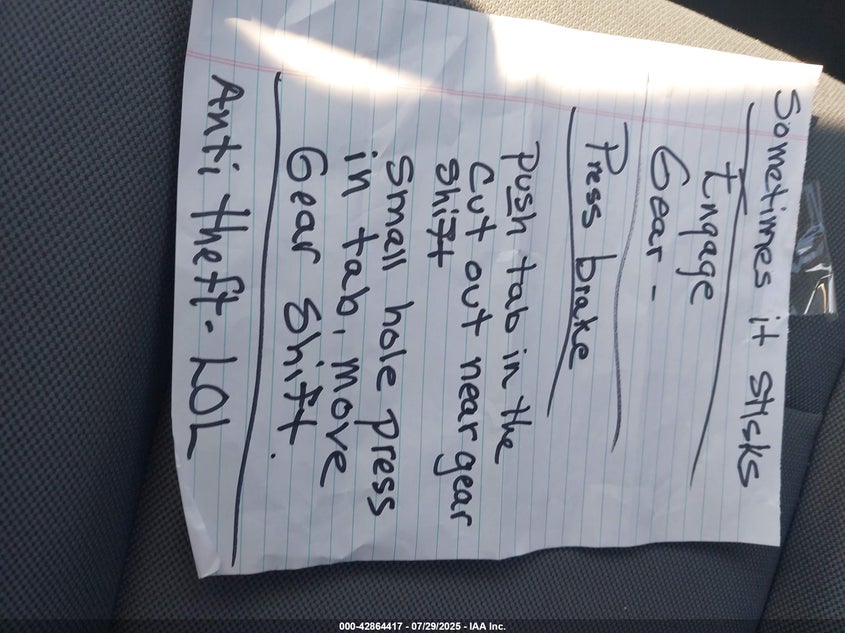 Sometimes it sticks
Engage
Gear -
Press brake
push tab in the
cut out near gear
shift
small hole press
in tab, move
Gear Shift.
Anti theft - LOL
000-42864417 - 07/29/2025 - IAA Inc.